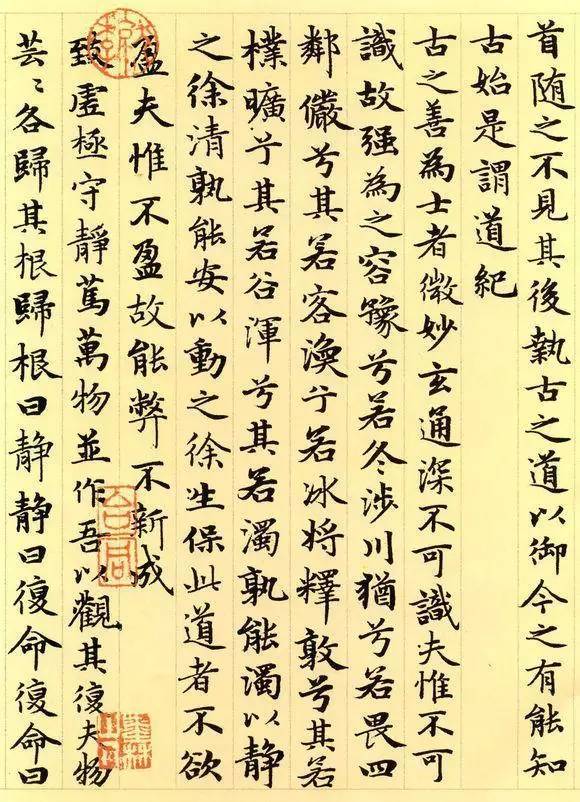 首随之不見其後執古之道以御今之有能知
古始是謂道紀
古之善為士者微妙玄通深不可識夫惟不可
識故强為之容豫兮若冬涉川猶兮若畏四
鄰儼兮其若客渙兮若冰将釋敦兮其若
樸曠兮其若谷渾兮其若濁孰能濁以靜
之徐清孰能安以動之徐生保此道者不欲
盈夫惟不盈故能弊不新成
致虛極守靜篤萬物並作吾以觀其復夫物
芸〻各歸其根歸根曰静静曰復命復命曰